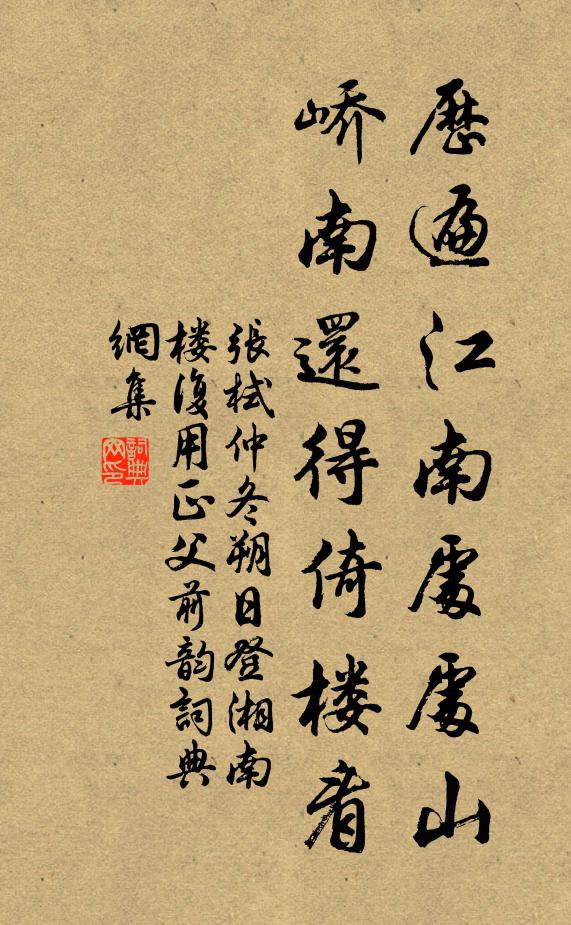 歷遍江南處處山
嶠南還得倚楼看
張栻仲冬朔日登湘南
楼復用正父前韵詞典
網集
詞典
网印